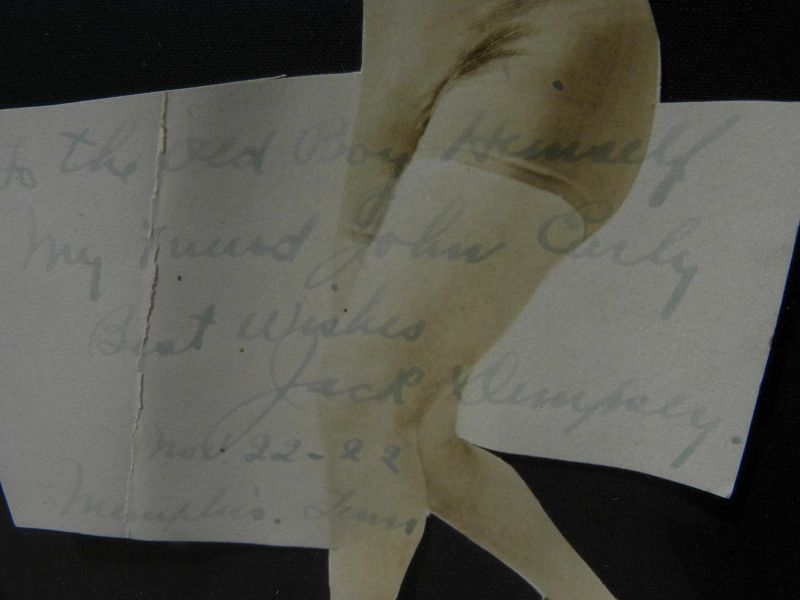 To the Old Boy Himself
My Friend John Curly
Best Wishes
Jack Dempsey.
Nov 22-22
Memphis. Tenn